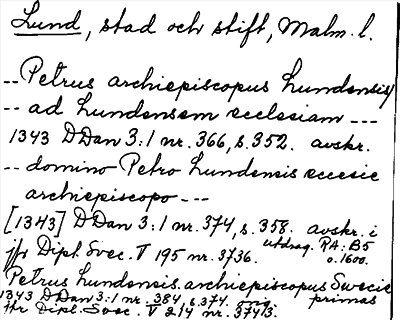 Lund, stad och stift, Malm. l.
-- Petrus archiepiscopus Lundensis/
-- ad Lundensem ecclesiam ---
1343 DDan 3:1 nr. 366, s. 352. avskr.
-- domino Petro Lundensis ecclesie
archiepiscopo ---
[1343] DDan 3:1 nr. 374, s. 358. avskr. i
utdrag. RA: B5
jfr Dipl. Svec. V 195 nr. 3736. o. 1600.
Petrus Lundensis archiepiscopus Swecie
primas
1343 DDan 3:1 nr. 384, s. 374. orig.
jfr Dipl. Svec. V 214 nr. 3743.